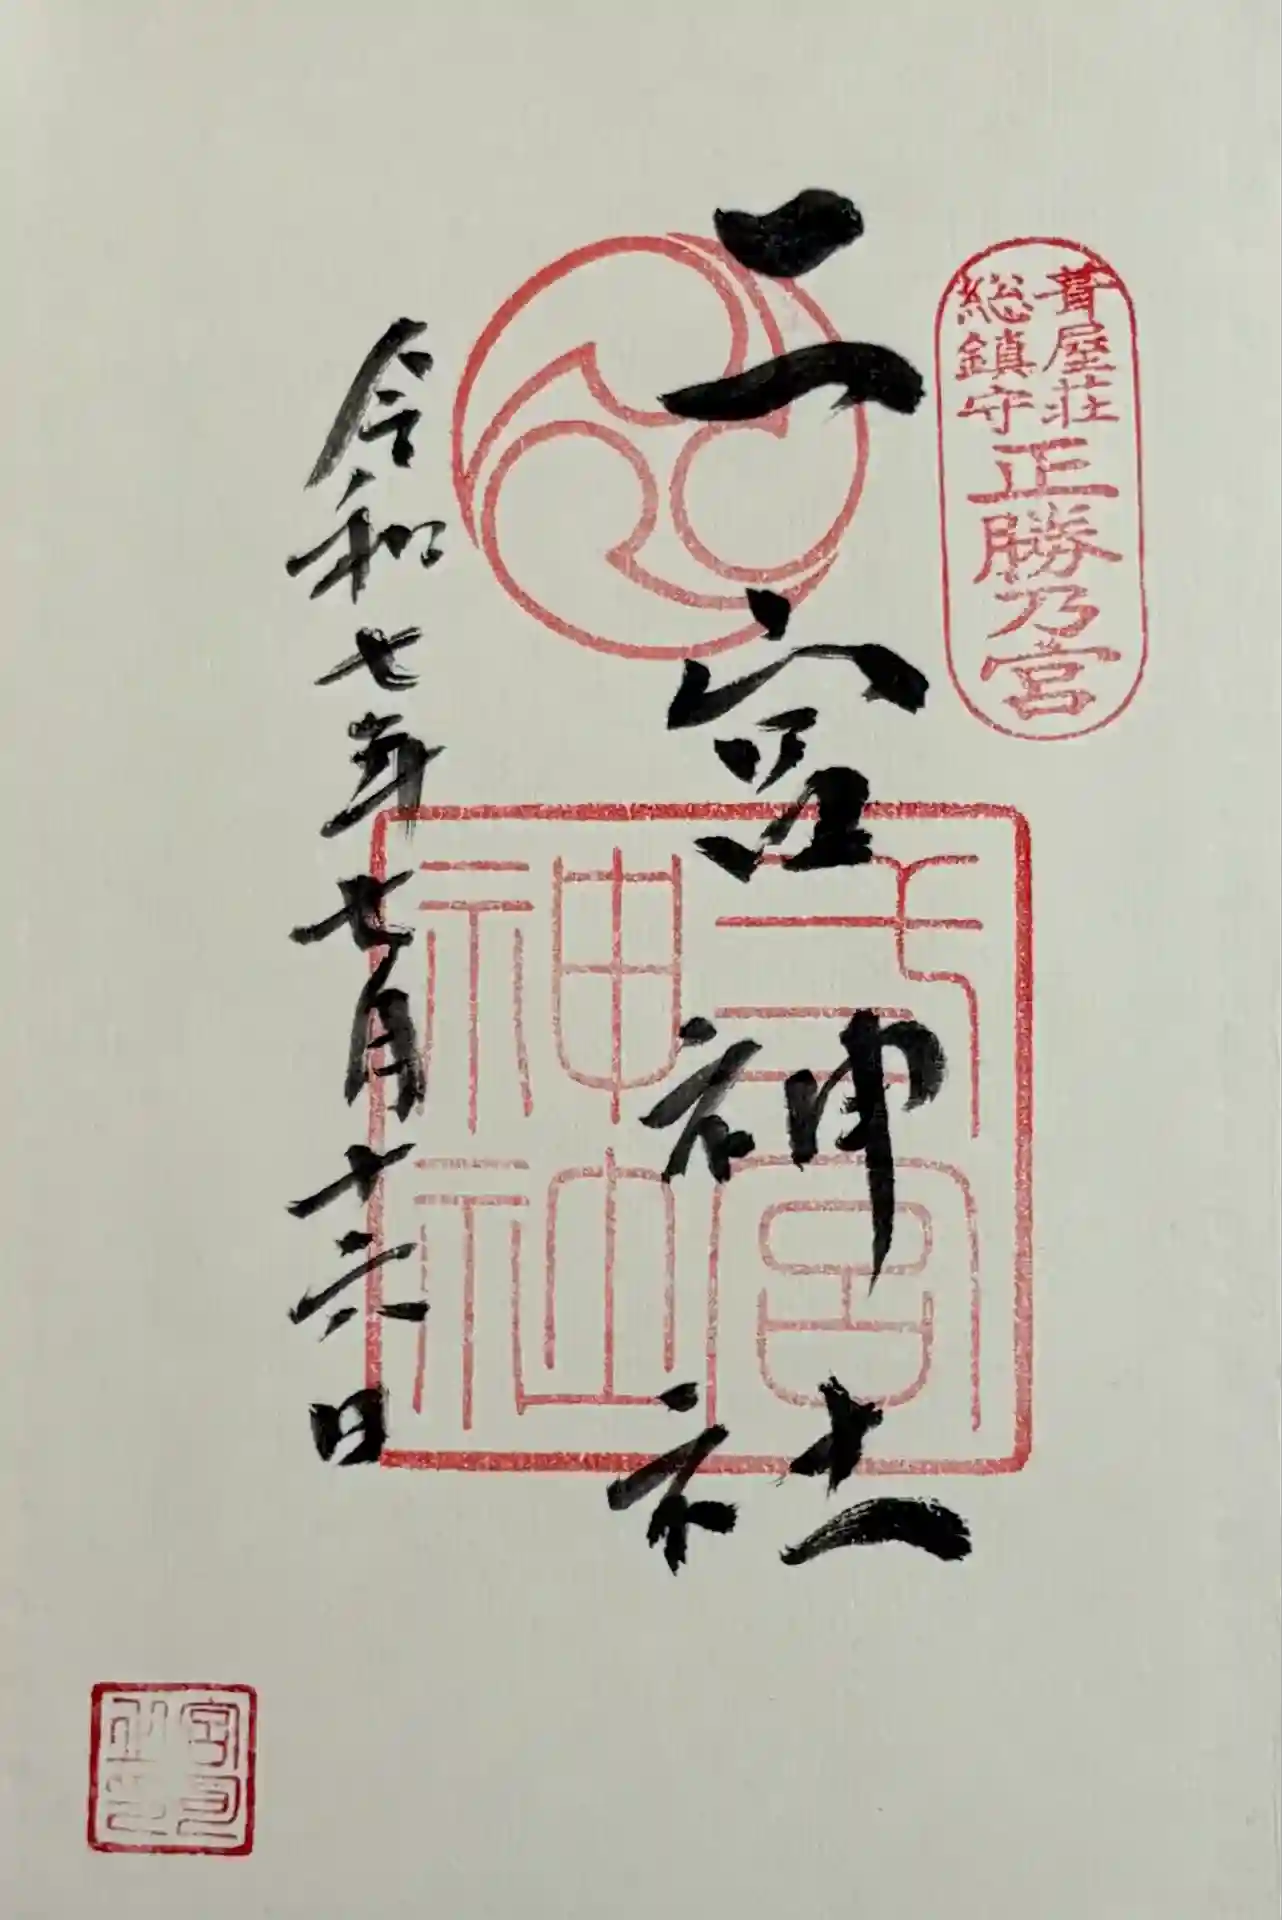 葺屋荘
総鎮守
正勝乃宮
二宮神社
弍宮
神社
令和七年七月十六日
宮司
之印